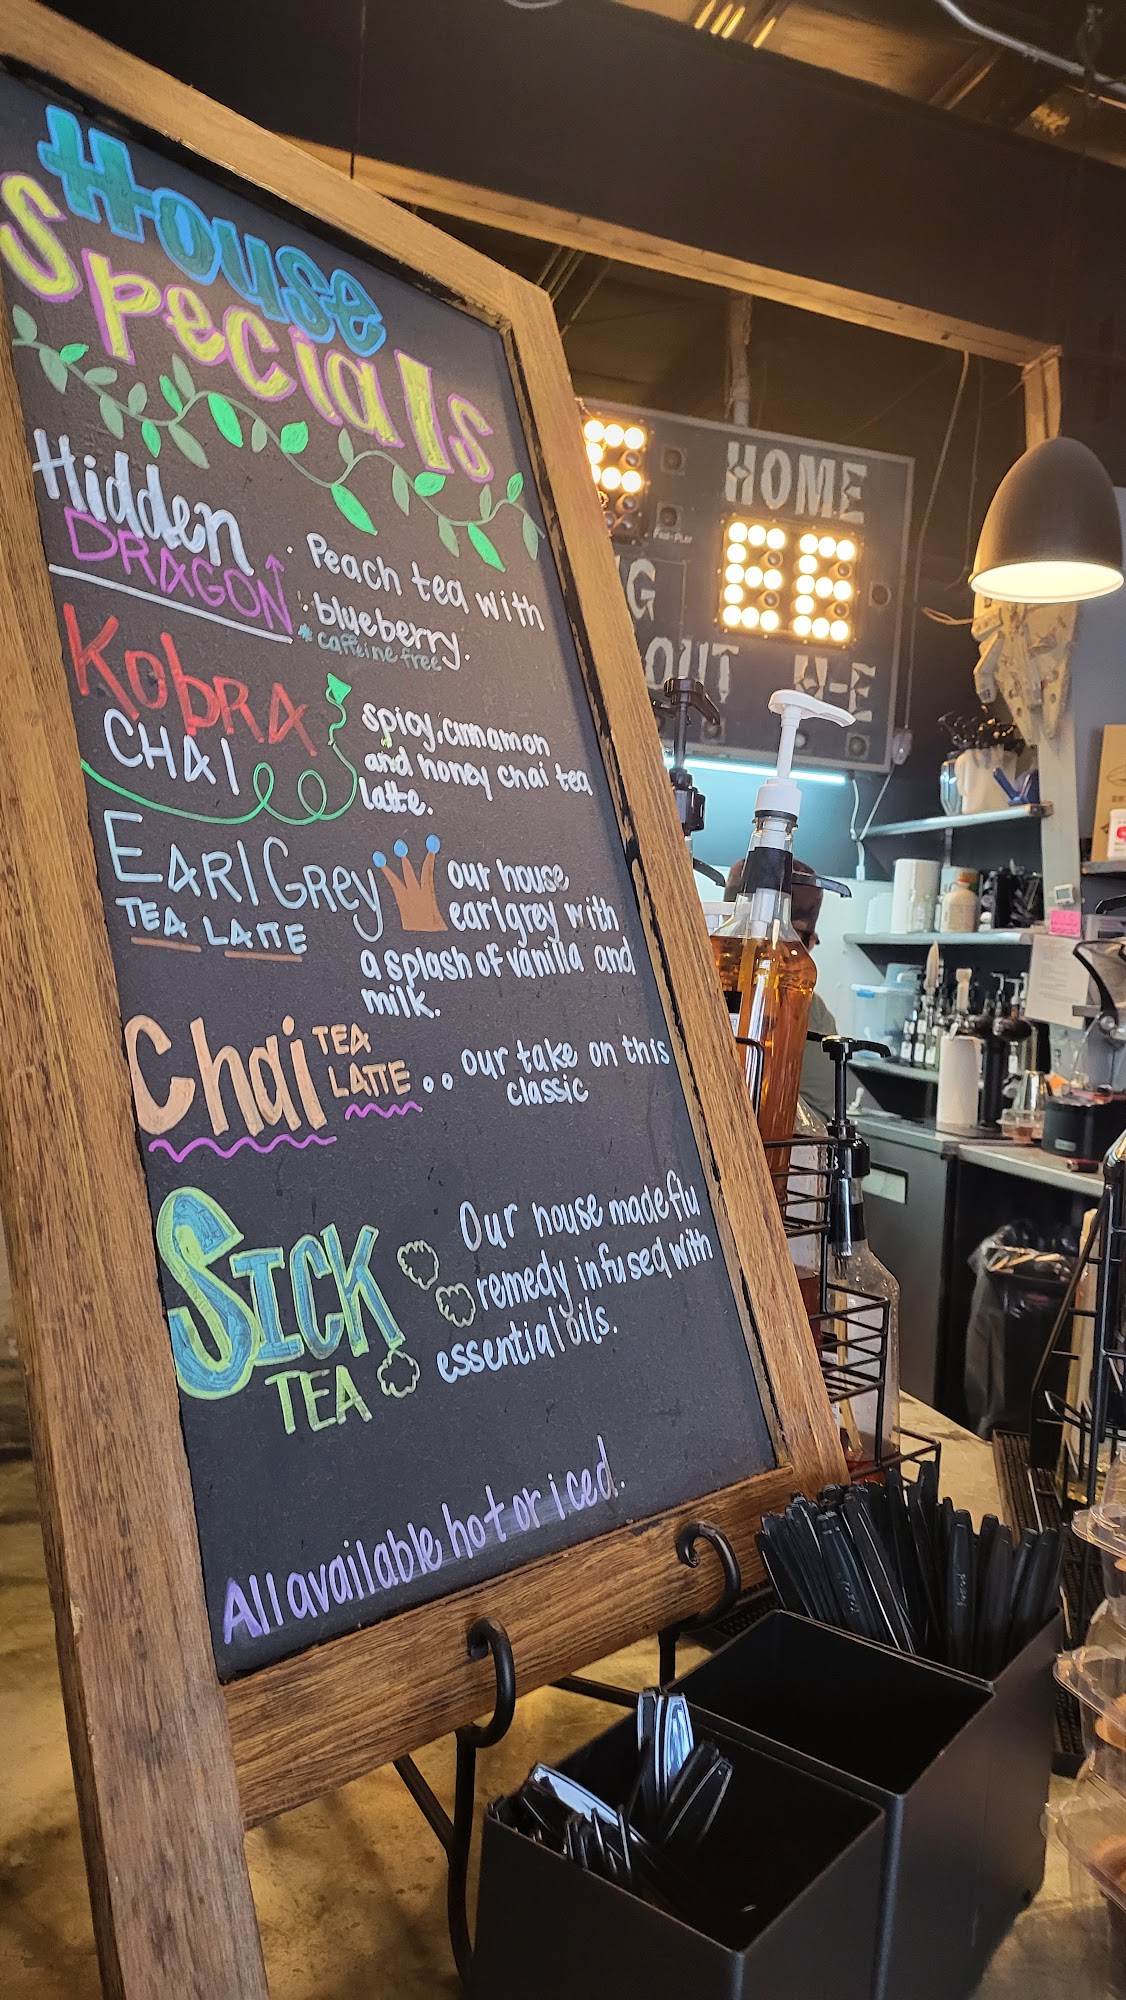 House
Specials
Hidden
DRAGON
· Peach tea with
· blueberry.
* caffeine free
KobRA
CHAI
spicy, cinnamon
and honey chai tea
latte.
EARlGRey
TEA LATTE
our house
earlgrey with
a splash of vanilla and
milk.
Chai TEA
LATTE..
our take on this
classic
SICK
TEA
Our house made flu
remedy infused with
essential oils.
All available hot or iced.
HOME
FAIR-PLAY
G
OUT H-E